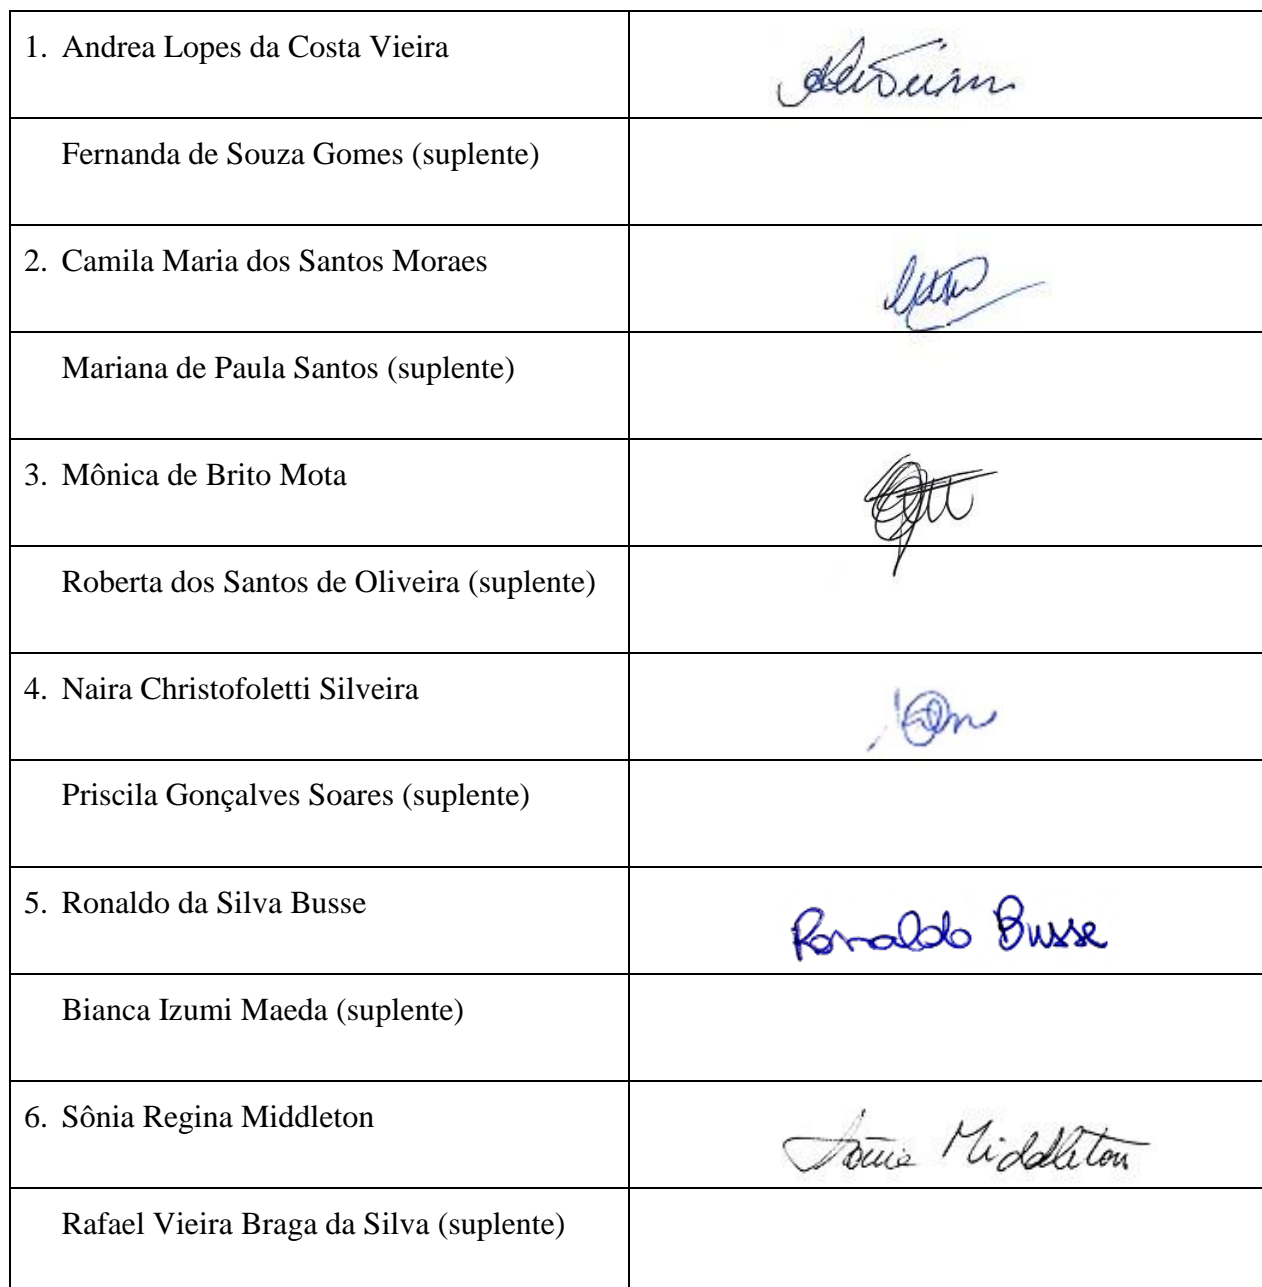 1. Andrea Lopes da Costa Vieira
Fernanda de Souza Gomes (suplente)
2. Camila Maria dos Santos Moraes
Mariana de Paula Santos (suplente)
3. Mônica de Brito Mota
Roberta dos Santos de Oliveira (suplente)
4. Naira Christofoletti Silveira
Priscila Gonçalves Soares (suplente)
5. Ronaldo da Silva Busse
Ronaldo Busse
Bianca Izumi Maeda (suplente)
6. Sônia Regina Middleton
Sônia Middleton
Rafael Vieira Braga da Silva (suplente)